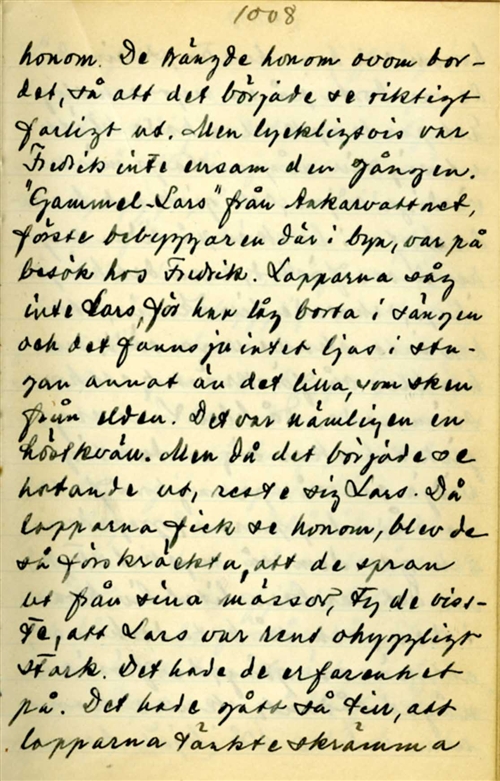 1008
honom. De trängde honom ovom bor-
det, så att det började se riktigt
farligt ut. Men lyckligtvis var
Fredrik inte ensam den gången.
"Gammel-Lars" från Ankarvattnet,
förste bebyggaren där i byn, var på
besök hos Fredrik. Lapparna såg
inte Lars, för han låg borta i sängen
och det fanns ju intet ljus i stu-
gan annat än det lilla, som sken
från elden. Det var nämligen en
höstkväll. Men då det började se
hotande ut, reste sig Lars. Då
lapparna fick se honom, blev de
så förskräckta, att de spran
ut från sina mössor, ty de viss-
te, att Lars var rent ohyggligt
stark. Det hade de erfarenhet
på. Det hade gått så till, att
lapparna tänkte skrämma